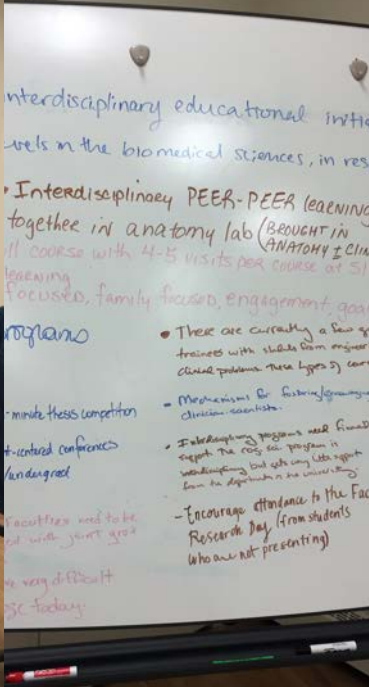 interdisciplinary educational initi
vels in the biomedical sciences, in res
• Interdisciplinary PEER-PEER leARNING
together in anatomy lab (BROUGHT IN
ANATOMY ± CLIN
ll course with 4-5 visits per course at SI
learning
focused, family focused, engagement, goa
rograms
-minute thesis competition
t-centered conferences
/undergrad
Faculties need to be
ed with joint
very difficult
today.
• There are currently a few
trainees with from engineer
clinical problems. These types of
- Mechanisms for fostering/
clinician-scientists.
• Interdisciplinary programs need
support. The sci program is
but gets very little support
from the departments in the university.
- Encourage attendance to the Fac
Research Day (from students
who are not presenting)